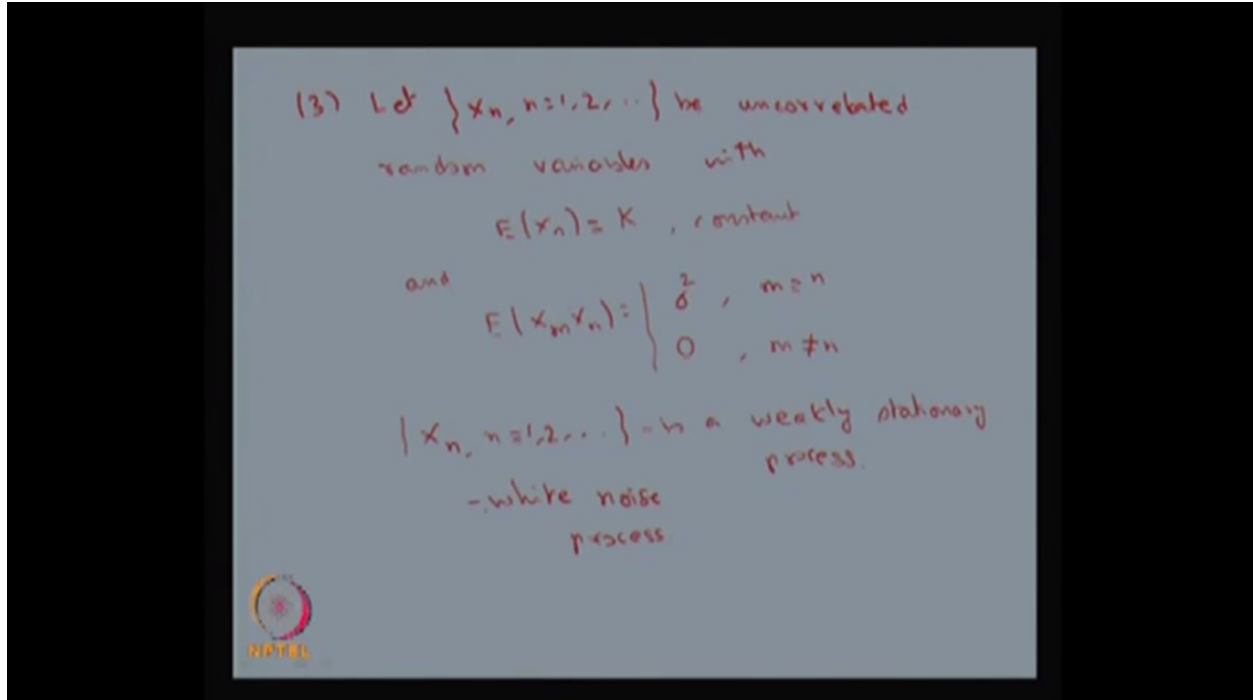 (3) Let {Xn, n=1,2,...} be uncorrelated
random variables with
E(Xn) = K, constant
and
E(XmXn) = { σ², m=n
0, m≠n
{Xn, n=1,2,...} is a weakly stationary
process.
- white noise
process
NPTEL